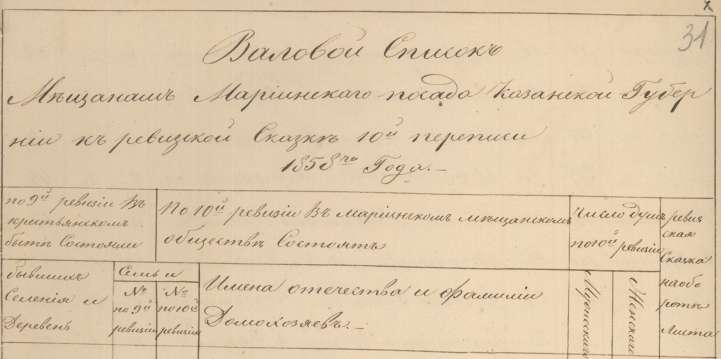 31
Валовой Списокъ
Мѣщанамъ Маріинскаго посада Казанской Губер
ніи къ ревизкой Сказкѣ 10й переписи
1858го Года.
по 9й ревизіи въ
крестьянскомъ
бытѣ Состояли
По 10й ревизіи въ Маріинскомъ мѣщанскомъ
обществѣ Состоятъ
Число душъ
по 10й ревизіи
ревиз
ская
Сказка
на обо
ротѣ
Листа
бывшихъ
Селенія и
Деревень
Семьи
№
по 9й
ревизіи
№
по 10й
ревизіи
Имена отечества и фамиліи
Домохозяевъ.
Мужскаго
Женскаго